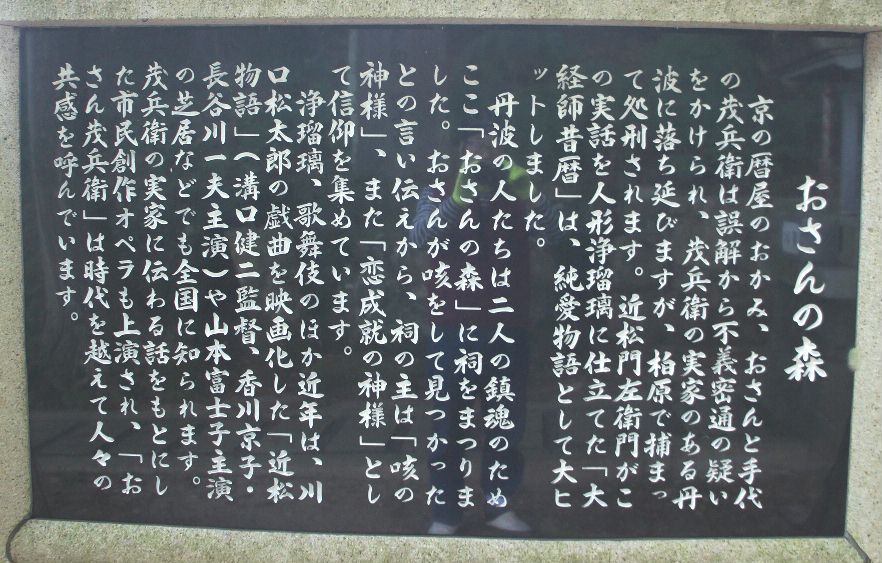 おさんの森
京の暦屋のおかみ、おさんと手代
の茂兵衛は誤解から不義密通の疑い
をかけられ、茂兵衛の実家のある丹
波に落ち延びますが、柏原で捕まっ
て処刑されます。近松門左衛門がこ
の実話を人形浄瑠璃に仕立てた「大
経師昔暦」は、純愛物語として大ヒ
ットしました。
丹波の人たちは二人の鎮魂のため
ここ「おさんの森」に祠をまつりま
した。おさんが咳をして見つかった
との言い伝えから、祠の主は「咳の
神様」、また「恋成就の神様」とし
て信仰を集めています。
浄瑠璃、歌舞伎のほか近年は、川
口松太郎の戯曲を映画化した「近松
物語」(溝口健二監督、香川京子・
長谷川一夫主演)や山本富士子主演
の芝居などでも全国に知られます。
茂兵衛の実家に伝わる話をもとにし
た市民創作オペラも上演され、「お
さん茂兵衛」は時代を越えて人々の
共感を呼んでいます。